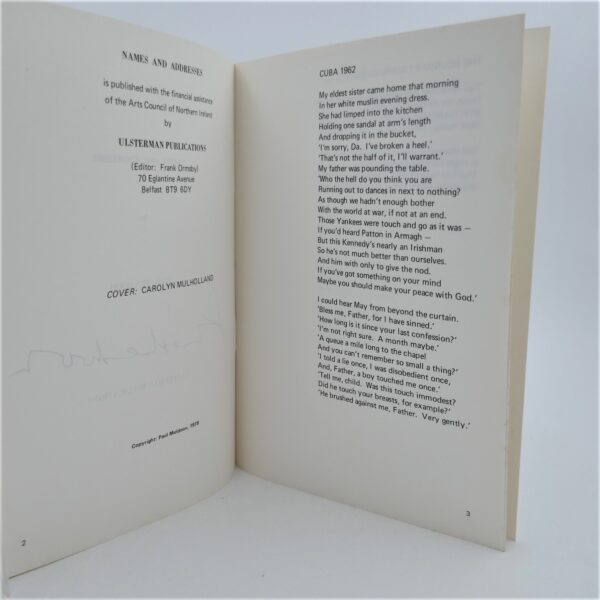 NAMES AND ADDRESSES
is published with the financial assistance
of the Arts Council of Northern Ireland
by
ULSTERMAN PUBLICATIONS
(Editor: Frank Ormsby)
70 Eglantine Avenue
Belfast BT9 6DY
COVER: CAROLYN MULHOLLAND
Copyright: Paul Muldoon, 1978
2
CUBA 1962
My eldest sister came home that morning
In her white muslin evening dress.
She had limped into the kitchen
Holding one sandal at arm's length
And dropping it in the bucket,
'I'm sorry, Da. I've broken a heel.'
'That's not the half of it, I'll warrant.'
My father was pounding the table.
'Who the hell do you think you are
Running out to dances in next to nothing?
As though we hadn't enough bother
With the world at war, if not at an end.
Those Yankees were touch and go as it was –
If you'd heard Patton in Armagh –
But this Kennedy's nearly an Irishman
So he's not much better than ourselves.
And him with only to give the nod.
If you've got something on your mind
Maybe you should make your peace with God.'
I could hear May from beyond the curtain.
'Bless me, Father, for I have sinned.'
'How long is it since your last confession?'
'I'm not right sure. A month maybe.'
'A queue a mile long to the chapel
And you can't remember so small a thing?'
'I told a lie once, I was disobedient once,
And, Father, a boy touched me once.'
'Tell me, child. Was this touch immodest?
Did he touch your breasts, for example?'
'He brushed against me, Father. Very gently.'
3